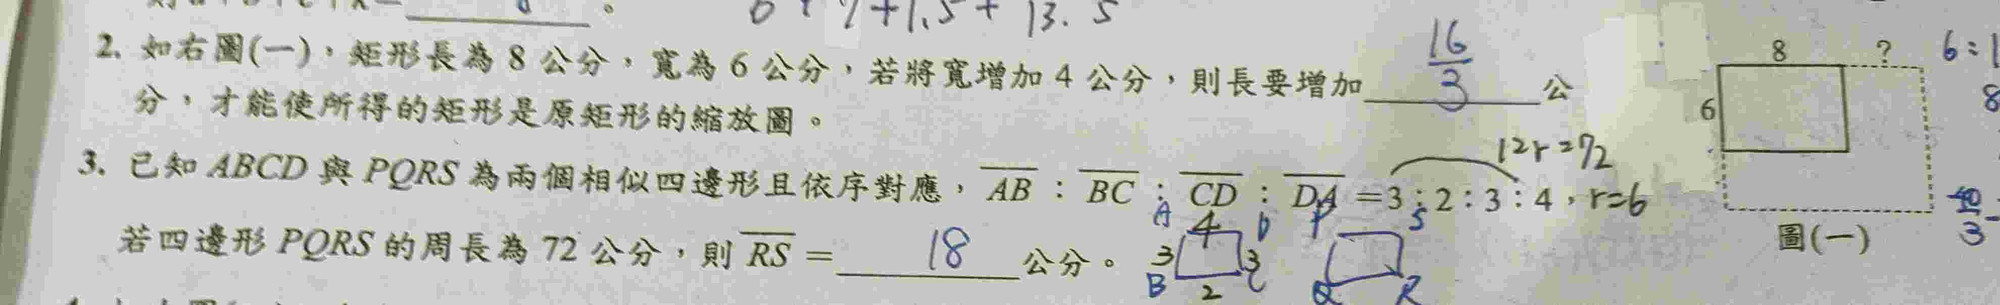 6 + 7 + 1.5 + 13.5
2. 如右圖(一)，矩形長為 8 公分，寬為 6 公分，若將寬增加 4 公分，則長要增加 16/3 公
分，才能使所得的矩形是原矩形的縮放圖。
8 ?
6
圖(一)
6:1
8
40/3-
3. 已知 ABCD 與 PQRS 為兩個相似四邊形且依序對應，AB : BC : CD : DA = 3 : 2 : 3 : 4，
12r=72
r=6
若四邊形 PQRS 的周長為 72 公分，則 RS = 18 公分。
A 4 D P S
3 3
B 2 C Q R